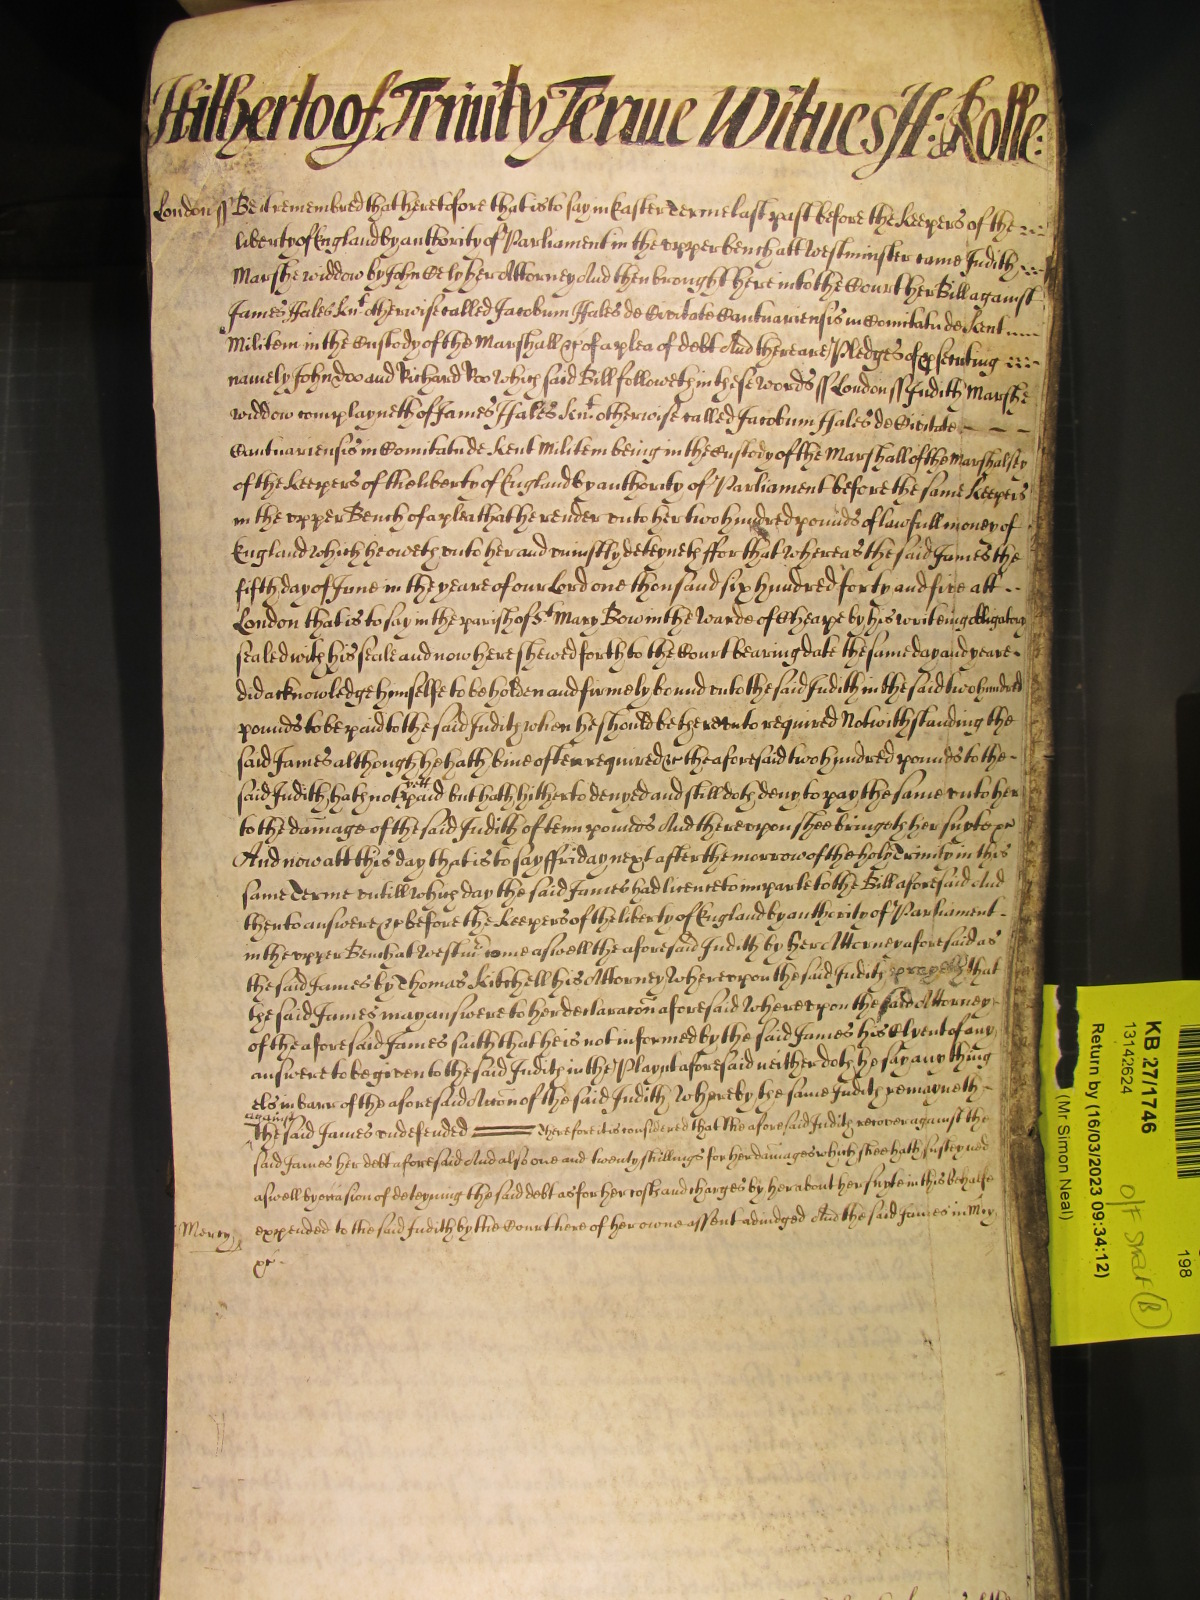 Hitherto of Trinity Terme Witnes H: Rolle:
London ss Be it remembred that heretofore that is to say in Easter Terme last past before the Keepers of the
liberty of England by authority of Parliament in the upper bench att Westminster came Judith
Marshe widdow by John Cely her Attorney And then brought here into the Court her Bill against
James Hales Knt. otherwise called Jacobum Hales de Civitate Cantuariensis in Comitatu de Kent
Militem in the Custody of the Marshall &c of a plea of debt And there are Pledges of psecuting
namely John Doo and Richard Roo Which said Bill followeth in these words ss London ss Judith Marshe
widdow complayneth of James Hales Knt. otherwise called Jacobum Hales de Civitate
Cantuariensis in Comitatu de Kent Militem being in the Custody of the Marshall of the Marshalsey
of the Keepers of the liberty of England by authority of Parliament before the same Keepers
in the upper Bench of a plea that he render unto her two hundred pounds of lawfull money of
England which he oweth unto her and uniustly deteyneth ffor that whereas the said James the
fifth day of June in the yeare of our Lord one thousand six hundred forty and five att
London that is to say in the parish of St. Mary Bow in the Warde of Cheape by his writeing obligatory
sealed with his seale and now here shewed forth to the Court bearing date the same day and yeare
did acknowledge himselfe to be holden and firmely bound unto the said Judith in the said two hundred
pounds to be paid to the said Judith when he should be thereunto required Notwithstanding the
said James although he hath bine often required &c the aforesaid two hundred pounds to the
said Judith hath not yett paid but hath hitherto denyed and still doth deny to pay the same unto her
to the damage of the said Judith of tenn pounds And thereupon shee bringeth her suyte &c
And now att this day that is to say ffriday next after the morrow of the holy Trinity in this
same Terme untill which day the said James had licence to imparle to the Bill aforesaid And
then to answere &c before the Keepers of the liberty of England by authority of Parliament
in the upper Bench at Westmr come aswell the aforesaid Judith by her Attorney aforesaid as
the said James by Thomas Kitchell his Attorney Whereupon the said Judith prayeth that
the said James may answere to her declaracon aforesaid Whereupon the said Attorney
of the aforesaid James saith that he is not informed by the said James his Clyent of any
answere to be given to the said Judith in the Playnt aforesaid neither doth he say any thing
els in barr of the aforesaid Accon of the said Judith Whereby the same Judith remayneth
against
the said James undefended Therefore it is considered that the aforesaid Judith recover against the
said James her debt aforesaid And also one and twenty shillings for her damages which shee hath susteyned
aswell by occasion of deteyning the said debt as for her costs and charges by her about her suyte in this behalfe
Mercy expended to the said Judith by the Court here of her owne assent adiudged And the said James in Mcy
&c
KB 27/1746
13142624
Return by (16/03/2023 09:34:12)
(Mr Simon Neal)
198
O/F Strait (B)